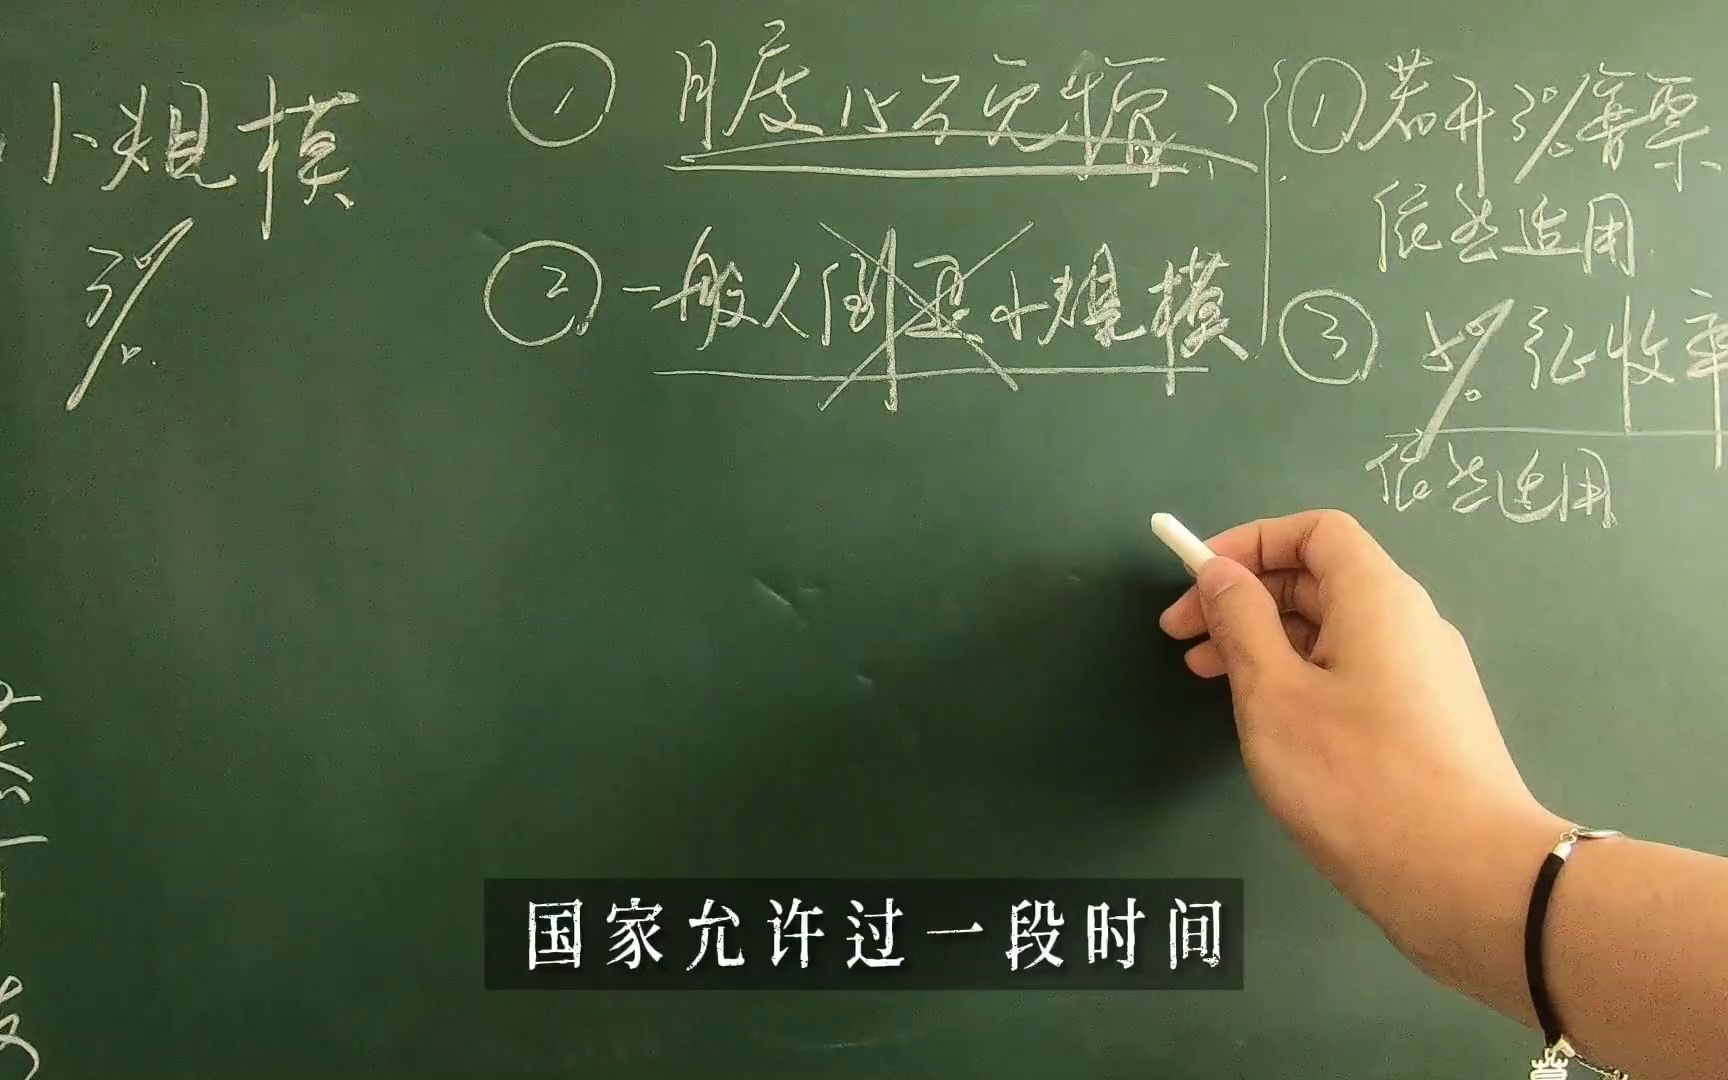 小规模
3%
① 月度15万免增、
② 一般人倒退小规模
① 若开3%专票
依然适用
③ 5%征收率
依然适用
国家允许过一段时间